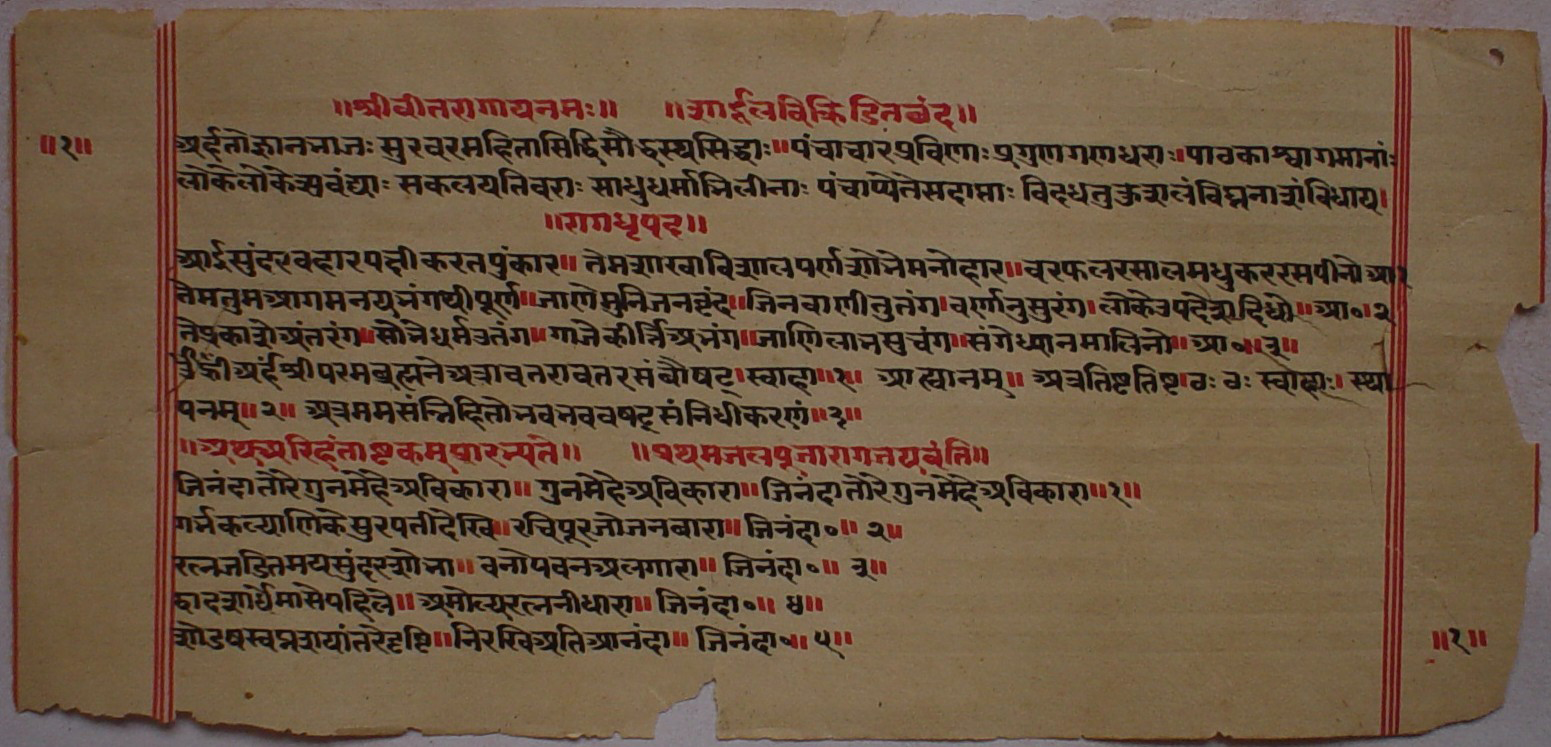 ॥श्रीवीतरागायनमः॥ ॥शार्दूलविक्रिडितछंद॥
॥१॥
अर्हंतोज्ञानभाजः सुरवरमहितासिद्धिसौधस्थसिद्धाः॥पंचाचारप्रविणाः प्रगुणगणधराः।पाठकाश्चागमानांः
लोकेलोकेशवंद्याः सकलयतिवराः साधुधर्माभिलीनाः पंचाप्येतेसदाप्ताः विदधतुकुशलंविघ्ननाशंविधाय।
॥रागधृपद॥
आईसुंदरवहारपल्लीकरतपुंकार॥ तेमशाखाविशालपर्णशोभेमनोहार॥वरफलरसालमधुकररसपीनो॥आ१
तेमतुमआगमनयभंगथीपूर्ण॥जाणेमुनिजनवृंद॥जिनवाणीनुतंग।वर्णनुसुरंग। लोकेउपदेशदिधो॥आ०॥२
तेप्रकाशेअंतरंग॥सौनेधर्मउतंग॥गाजेकीर्त्तिअभंग॥जाणिलाभसुचंग॥संगेध्यानमालिनो॥आ०॥३॥
ॐह्रीँअर्हंश्रीपरमब्रह्मनेअत्रावतरावतरसंबौषट्।स्वाहा॥१॥ आह्वानम्॥ अत्रतिष्टतिष्ट।ठः ठः स्वाहाः। स्था
पनम्॥२॥ अत्रममसंन्निहितोभवभववषट्संनिधीकरणं॥३॥
॥अथअरिहंताष्टकमुपारभ्यते॥ ॥प्रथमजलपूजारागजयवंति॥
जिनंदातोरेगुनमेंहेअविकारा॥ गुनमेहैअविकारा॥जिनंदातोरेगुनमेंहेअविकारा॥१॥
गर्भकल्याणिकेसुरपतीदेखि॥रचिपूरजोजनबारा॥ जिनंदा०॥ २॥
रत्नजडितमयसुंदरशोभा॥ वनोपवनअलगारा॥ जिनंदा०॥ ३॥
द्वादशार्धमासेपहिले॥ अमोल्यरत्ननीधारा॥ जिनंदा०॥ ४॥
शोडषस्वप्नशयांतरेदृष्टि॥निरखिअतिआनंदा॥ जिनंदा०॥ ५॥
॥१॥